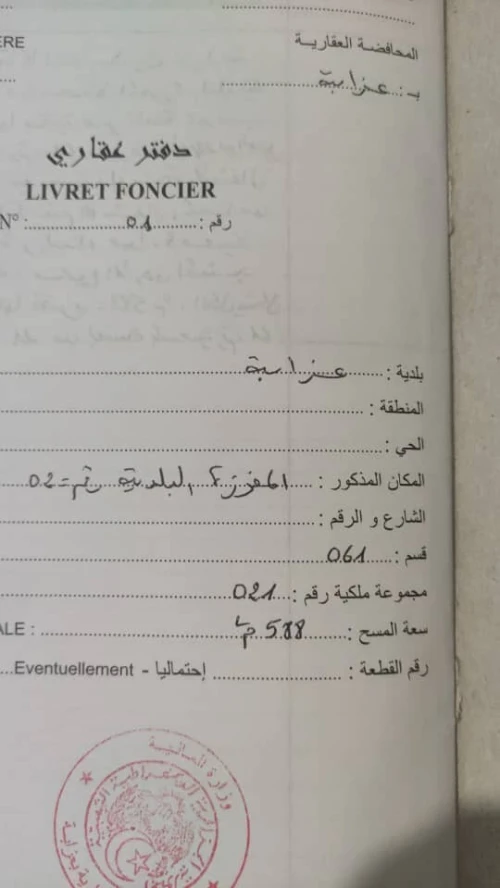 ERE المحافضة العقارية
بـ : عزابة
دفتر عقاري
LIVRET FONCIER
N° : 01 رقم :
بلدية : عزابة
المنطقة :
الحي :
المكان المذكور : المفرزة البلدية رقم = 02
الشارع و الرقم :
قسم : 061
مجموعة ملكية رقم : 021
ALE : سعة المسح : 588 م²
Eventuellement - إحتماليا رقم القطعة :
وزارة المالية
الجزائرية الديمقراطية الشعبية